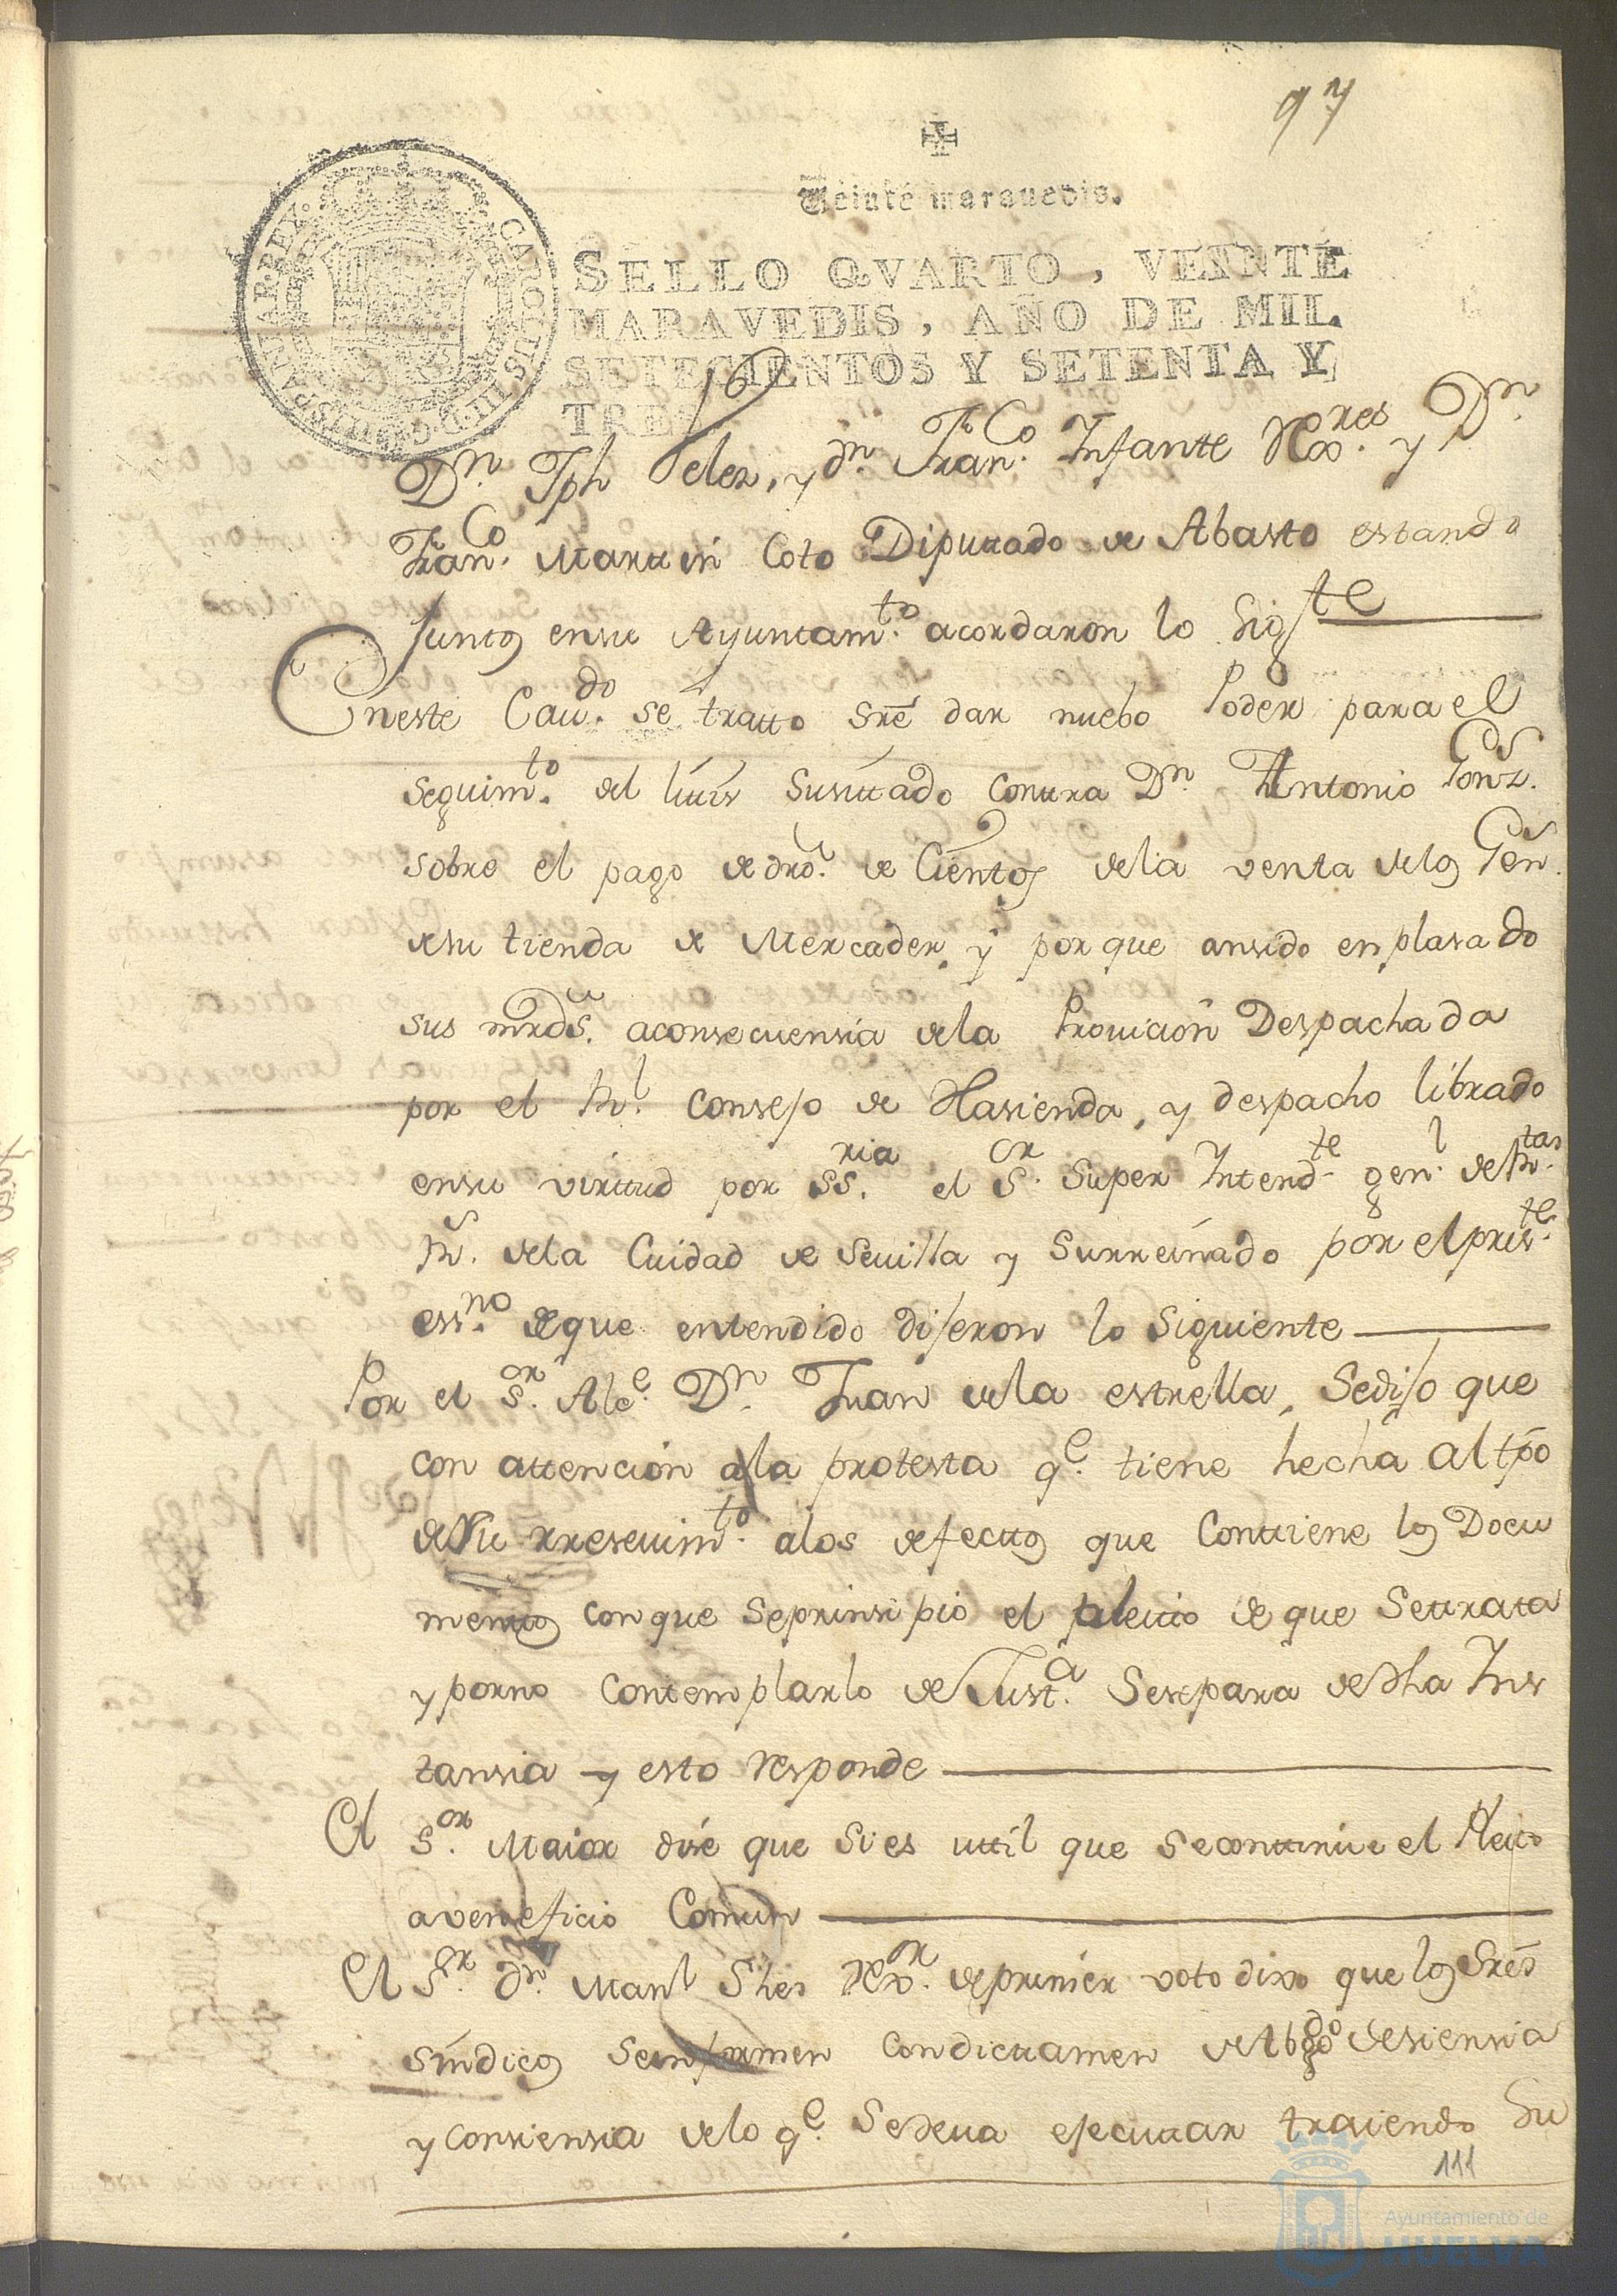 97
Veinte maravedis.
SELLO QVARTO, VEINTE
MARAVEDIS, AÑO DE MIL
SETECIENTOS Y SETENTA Y
TRES
CAROLUS III D G HISPANIAR REX
Dn. Jph Velez, y dn. Franco. Infante Rexres. y Dn.
Franco. Martin Coto Diputado de Abasto estando
Juntos ensu Ayuntamto. acordaron lo Sigte
Eneste Cavdo. se tratto sre dar nuebo Poder para el
seguimto. del litis susitado contra Dn. Antonio Gonz.
sobre el pago de dro. de Cientos dela venta delos Gen.
desu tienda de Mercader, y porque ansido enplasado
sus mrds. aconsecuensia dela Provicion Despachada
por el Rl. Consejo de Hasienda, y despacho librado
ensu virtud por SSria. el Sor. Super Intendte. genl. de Rtas.
Rs. dela Cuidad de Sevilla y Surreinado por el priste.
essno. de que entendido dijeron lo Siguiente
Por el Sor. Alce. Dn. Juan dela estrella, Sedijo que
con attencion ala protesta qe. tiene hecha al tpo
desu rresevimto. alos defectos que Conttiene los Docu
mentos conque seprinsipio el pleito de que Settrata
y porno contemplarlo de Justa. Sesepara de dha Ins
tansia y esto responde
El Sor. Maior dise que si es uttil que secontinue el Pleito
aveneficio Comun
El Sr. dn. Manl Shes Rexor. deprimer voto dixo que los Sres
sindicos seinformen condictamen de Abgdo desiensia
y consiensia delo qe. Sedeva ejecuttar traiendo Su
111
Ayuntamiento de
HUELVA